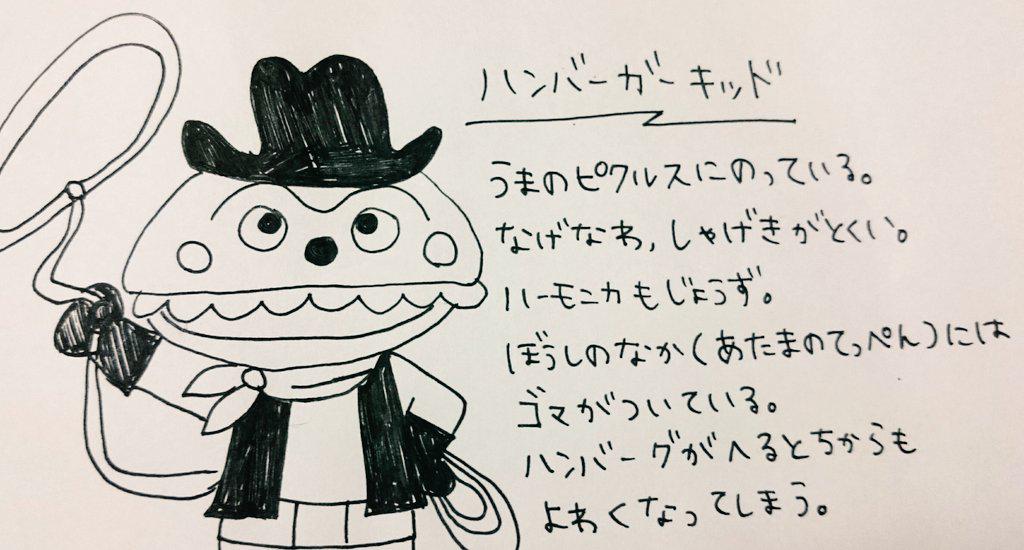 ハンバーガーキッド
うまのピクルスにのっている。
なげなわ,しゃげきがとくい。
ハーモニカもじょうず。
ぼうしのなか(あたまのてっぺん)には
ゴマがついている。
ハンバーグがへるとちからも
よわくなってしまう。